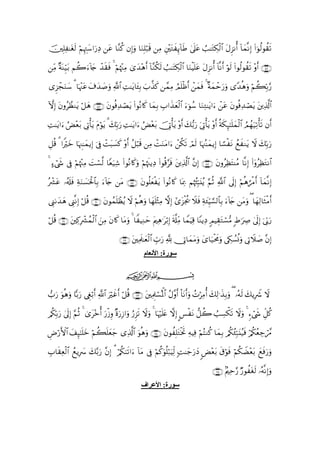 أَن تَقُولُوٓا۟ إِنَّمَآ أُنزِلَ ٱلْكِتَـٰبُ عَلَىٰ طَآئِفَتَيْنِ مِن قَبْلِنَا وَإِن كُنَّا عَن دِرَاسَتِهِمْ لَغَـٰفِلِينَ
﴿١٥٦﴾ أَوْ تَقُولُوا۟ لَوْ أَنَّآ أُنزِلَ عَلَيْنَا ٱلْكِتَـٰبُ لَكُنَّآ أَهْدَىٰ مِنْهُمْ ۚ فَقَدْ جَآءَكُم بَيِّنَةٌ مِّن
رَّبِّكُمْ وَهُدًى وَرَحْمَةٌ ۚ فَمَنْ أَظْلَمُ مِمَّن كَذَّبَ بِـَٔايَـٰتِ ٱللَّهِ وَصَدَفَ عَنْهَا ۗ سَنَجْزِى
ٱلَّذِينَ يَصْدِفُونَ عَنْ ءَايَـٰتِنَا سُوٓءَ ٱلْعَذَابِ بِمَا كَانُوا۟ يَصْدِفُونَ ﴿١٥٧﴾ هَلْ يَنظُرُونَ إِلَّآ
أَن تَأْتِيَهُمُ ٱلْمَلَـٰٓئِكَةُ أَوْ يَأْتِىَ رَبُّكَ أَوْ يَأْتِىَ بَعْضُ ءَايَـٰتِ رَبِّكَ ۗ يَوْمَ يَأْتِى بَعْضُ ءَايَـٰتِ
رَبِّكَ لَا يَنفَعُ نَفْسًا إِيمَـٰنُهَا لَمْ تَكُنْ ءَامَنَتْ مِن قَبْلُ أَوْ كَسَبَتْ فِىٓ إِيمَـٰنِهَا خَيْرًا ۗ قُلِ
ٱنتَظِرُوٓا۟ إِنَّا مُنتَظِرُونَ ﴿١٥٨﴾ إِنَّ ٱلَّذِينَ فَرَّقُوا۟ دِينَهُمْ وَكَانُوا۟ شِيَعًا لَّسْتَ مِنْهُمْ فِى شَىْءٍ ۚ
إِنَّمَآ أَمْرُهُمْ إِلَى ٱللَّهِ ثُمَّ يُنَبِّئُهُم بِمَا كَانُوا۟ يَفْعَلُونَ ﴿١٥٩﴾ مَن جَآءَ بِٱلْحَسَنَةِ فَلَهُۥ عَشْرُ
أَمْثَالِهَا ۖ وَمَن جَآءَ بِٱلسَّيِّئَةِ فَلَا يُجْزَىٰٓ إِلَّا مِثْلَهَا وَهُمْ لَا يُظْلَمُونَ ﴿١٦٠﴾ قُلْ إِنَّنِى هَدَىٰنِى
رَبِّىٓ إِلَىٰ صِرَٰطٍ مُّسْتَقِيمٍ دِينًا قِيَمًا مِّلَّةَ إِبْرَٰهِيمَ حَنِيفًا ۚ وَمَا كَانَ مِنَ ٱلْمُشْرِكِينَ ﴿١٦١﴾ قُلْ
إِنَّ صَلَاتِى وَنُسُكِى وَمَحْيَاىَ وَمَمَاتِى لِلَّهِ رَبِّ ٱلْعَـٰلَمِينَ ﴿١٦٢﴾
سورة: الأنعام
بِسْمِ ٱللَّهِ ٱلرَّحْمَـٰنِ ٱلرَّحِيمِ
لَا شَرِيكَ لَهُۥ ۖ وَبِذَٰلِكَ أُمِرْتُ وَأَنَا۠ أَوَّلُ ٱلْمُسْلِمِينَ ﴿١٦٣﴾ قُلْ أَغَيْرَ ٱللَّهِ أَبْغِى رَبًّا وَهُوَ رَبُّ
كُلِّ شَىْءٍ ۚ وَلَا تَكْسِبُ كُلُّ نَفْسٍ إِلَّا عَلَيْهَا ۚ وَلَا تَزِرُ وَازِرَةٌ وِزْرَ أُخْرَىٰ ۚ ثُمَّ إِلَىٰ رَبِّكُم
مَّرْجِعُكُمْ فَيُنَبِّئُكُم بِمَا كُنتُمْ فِيهِ تَخْتَلِفُونَ ﴿١٦٤﴾ وَهُوَ ٱلَّذِى جَعَلَكُمْ خَلَـٰٓئِفَ ٱلْأَرْضِ
وَرَفَعَ بَعْضَكُمْ فَوْقَ بَعْضٍ دَرَجَـٰتٍ لِّيَبْلُوَكُمْ فِى مَآ ءَاتَىٰكُمْ ۗ إِنَّ رَبَّكَ سَرِيعُ ٱلْعِقَابِ
وَإِنَّهُۥ لَغَفُورٌ رَّحِيمٌۢ ﴿١٦٥﴾
سورة: الأعراف